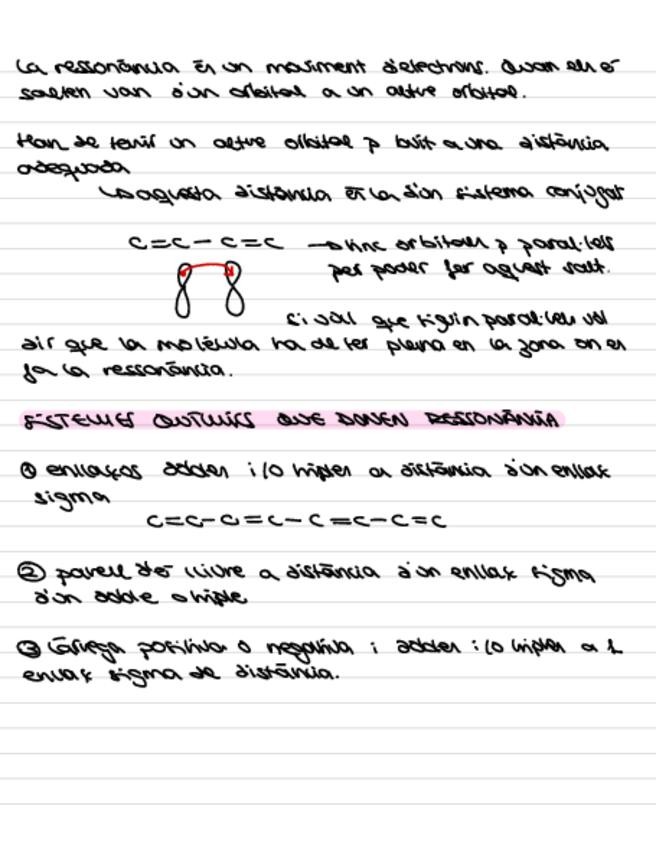 La ressonància és un moviment d'electrons. Quan els e⁻
salten van d'un orbital a un altre orbital.
Han de tenir un altre orbital p buit a una distància
adequada
↳ aquesta distància és la d'un sistema conjugat
C=C-C=C → tinc orbitals p paral·lels
per poder fer aquest salt.
Si vol que siguin paral·lels vol
dir que la molècula ha de ser plana en la zona on es
fa la ressonància.
SISTEMES QUÍMICS QUE DONEN RESSONÀNCIA
① enllaços dobles i/o triples a distància d'un enllaç
sigma
C=C-C=C-C=C-C=C
② parell d'e⁻ lliure a distància d'un enllaç sigma
d'un doble o triple
③ Càrrega positiva o negativa i dobles i/o triples a 1
enllaç sigma de distància.